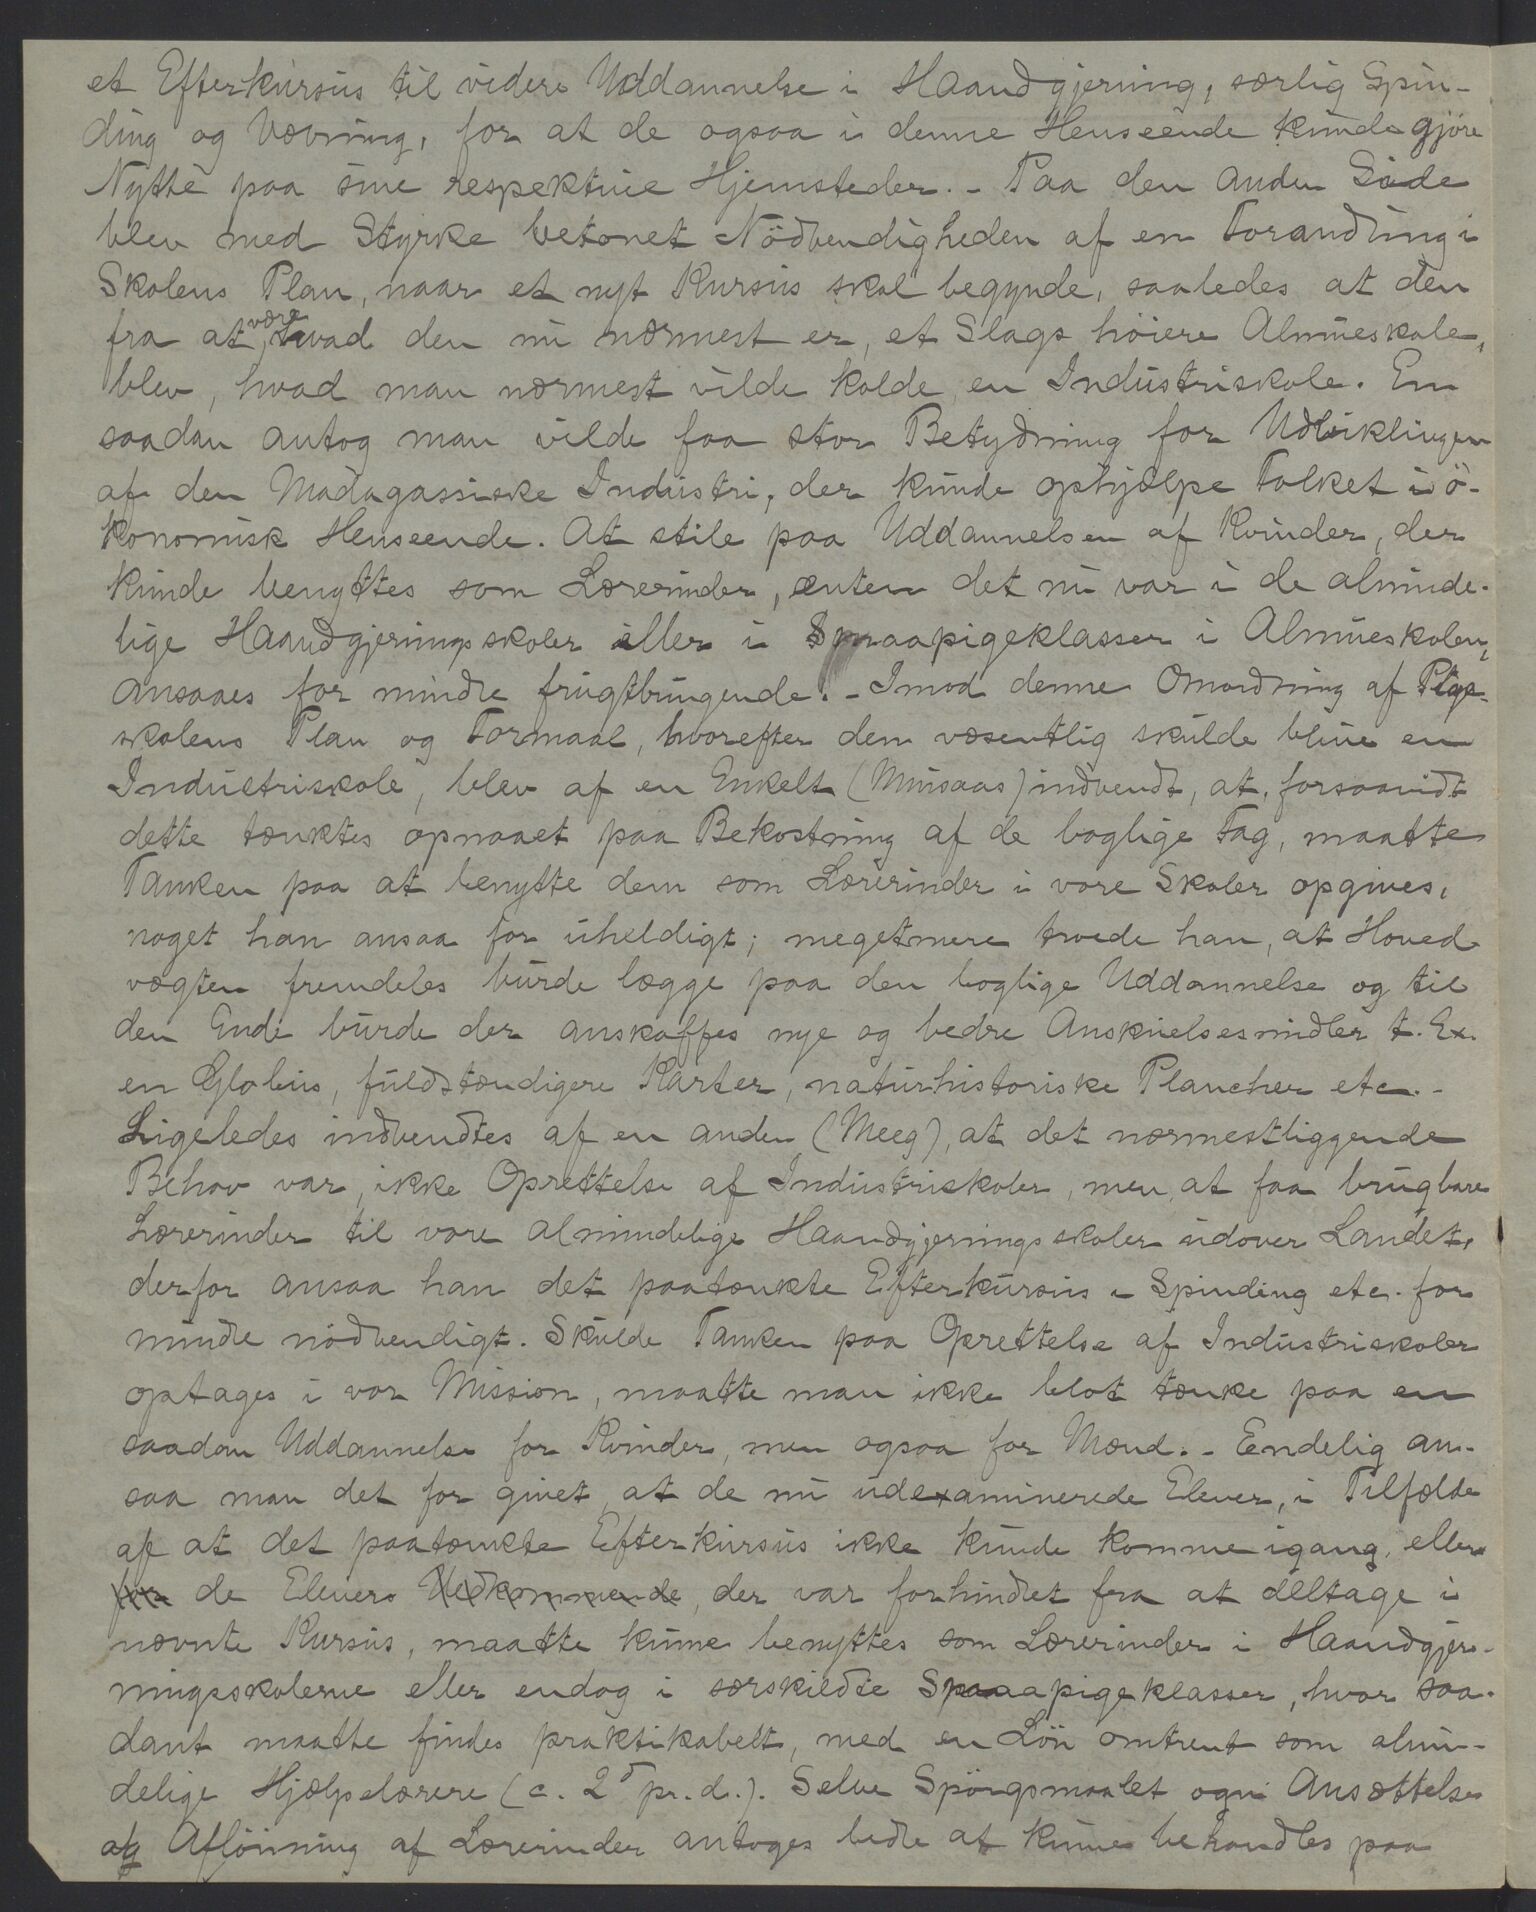 et Efterkursus til videre Uddannelse i Haandgjerning, særlig Spin-
ding og Vævning, for at de ogsaa i denne Henseende kunde gjöre
Nytte paa sine respektive Hjemsteder. - Paa den anden Side
blev med Styrke betonet Nödvendigheden af en Forandring i
Skolens Plan, naar et nyt Kursus skal begynde, saaledes at den
fra at være, hvad den nu nærmest er, et Slags höiere Almueskole,
blev, hvad man nærmest vilde kalde, en Industriskole. En
saadan antog man vilde faa stor Betydning for Udviklingen
af den Madagassiske Industri, der kunde ophjælpe Folket i ö-
konomisk Henseende. At stile paa Uddannelsen af Kvinder, der
kunde benyttes som Lærerinder, enten det nu var i de alminde-
lige Haandgjerningsskoler eller i Smaapigeklasser i Almueskolen,
ansaaes for mindre frugtbringende. - Imod denne Omordning af Pige-
skolens Plan og Formaal, hvorefter den væsentlig skulde blive en
Industriskole, blev af en Enkelt (Minsaas) indvendt, at, forsaavidt
dette tænktes opnaaet paa Bekostning af de boglige Fag, maatte
Tanken paa at benytte dem som Lærerinder i vore Skoler opgives,
noget han ansaa for uheldigt; megetmere troede han, at Hoved-
vægten fremdeles burde lægge paa den boglige Uddannelse og til
den Ende burde der anskaffes nye og bedre Anskuelsesmidler t. Ex.
en Globus, fuldstændigere Karter, naturhistoriske Plancher etc. -
Ligeledes indvendtes af en anden (Meeg), at det nærmestliggende
Behov var, ikke Oprettelse af Industriskoler, men at faa brugbare
Lærerinder til vore almindelige Haandgjerningsskoler udover Landet,
derfor ansaa han det paatænkte Efterkursus i Spinding etc. for
mindre nödvendigt. Skulde Tanken paa Oprettelse af Industriskoler
optages i vor Mission, maatte man ikke blot tænke paa en
saadan Uddannelse for Kvinder, men ogsaa for Mænd. - Endelig an-
saa man det for givet, at de nu udexaminerede Elever, i Tilfælde
af at det paatænkte Efterkursus ikke kunde komme igang, eller
for de Elevers Vedkommende, der var forhindret fra at deltage i
nævnte Kursus, maatte kunne benyttes som Lærerinder i Haandgjer-
ningsskolerne eller endog i særskildte Smaapigeklasser, hvor saa-
dant maatte findes praktikabelt, med en Lön omtrent som almin-
delige Hjælpelærere (c. 2 pr. d.). Selve Spörgsmaalet om Ansættelse
og Aflönning af Lærerinder antoges bedre at kunne behandles paa